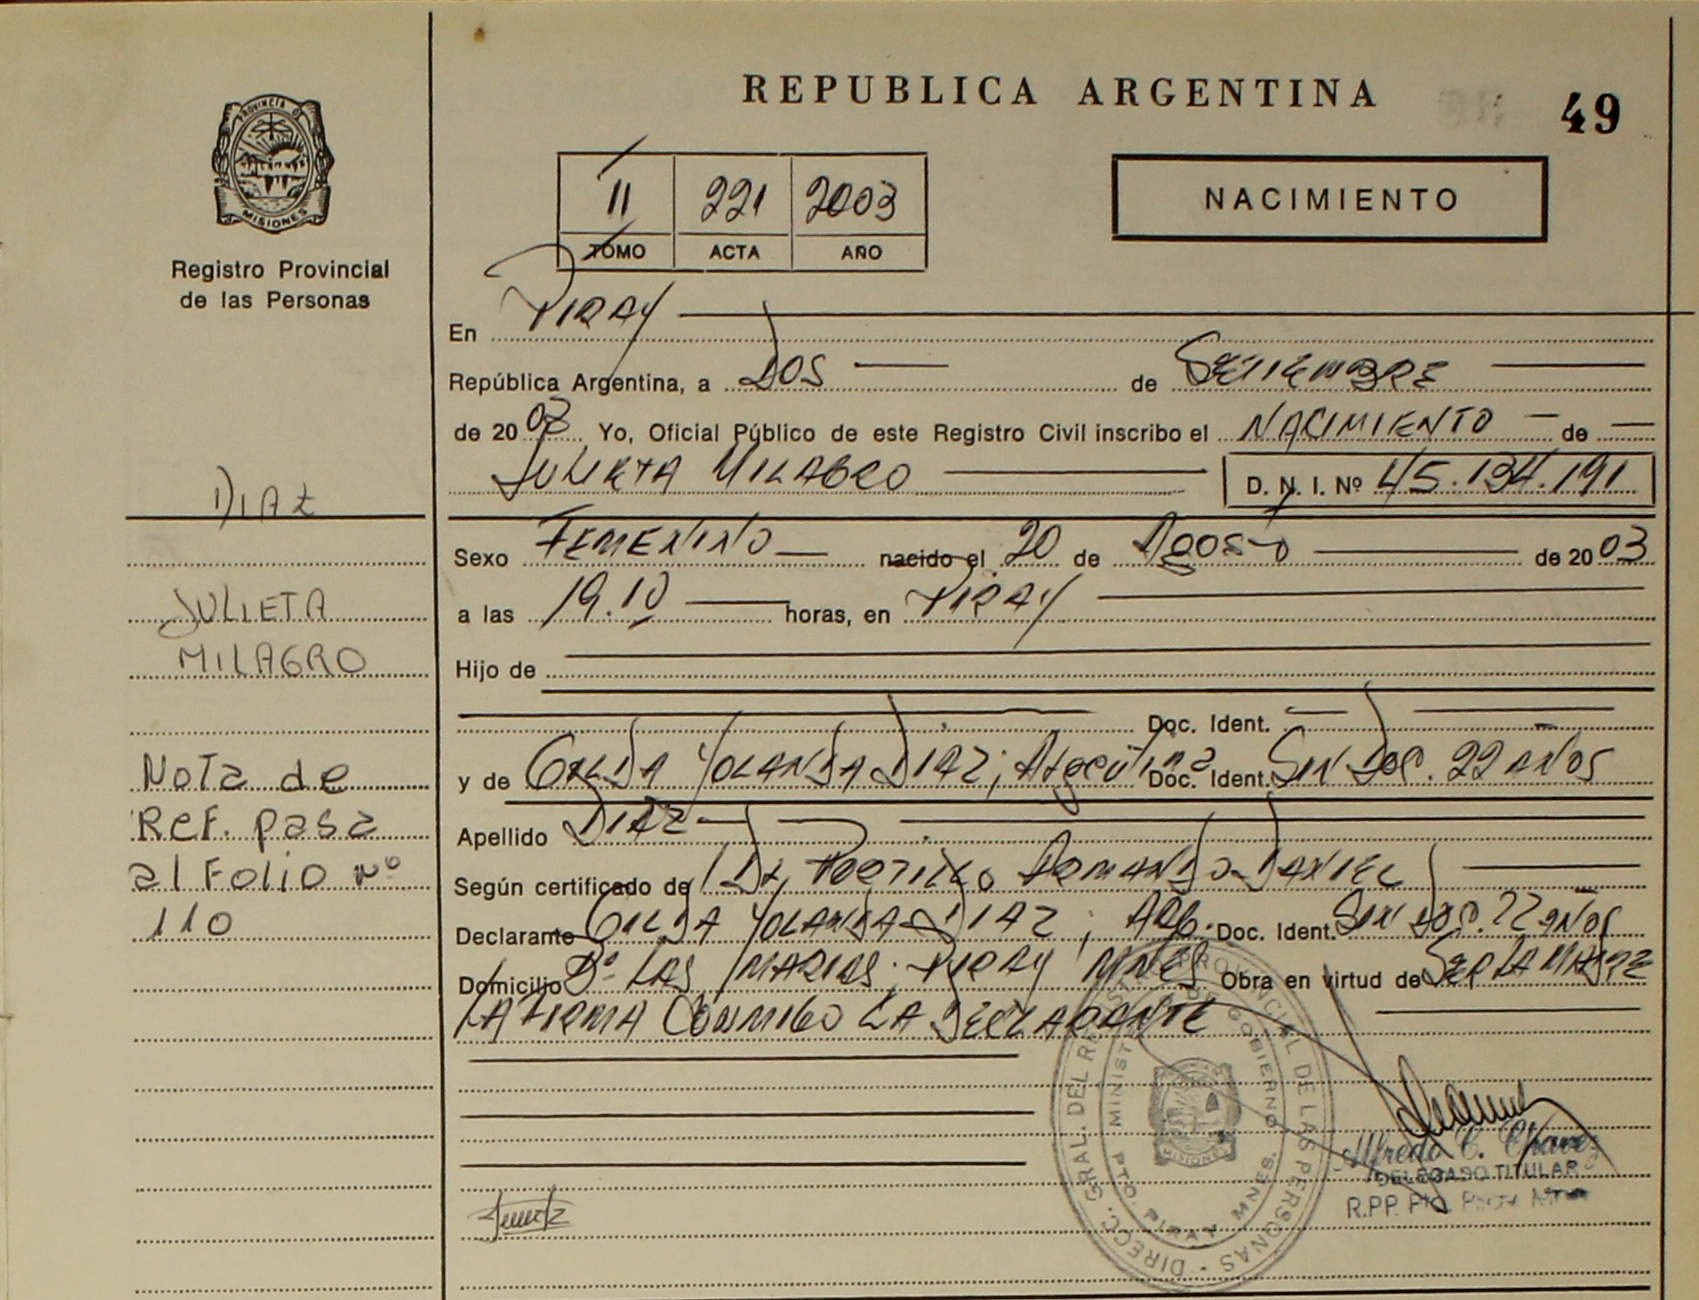 REPUBLICA ARGENTINA
49
PROVINCIA DE
MISIONES
Registro Provincial
de las Personas
II 221 2003
TOMO ACTA AÑO
NACIMIENTO
En PIRAY
República Argentina, a DOS de SETIEMBRE
de 2003 Yo, Oficial Público de este Registro Civil inscribo el NACIMIENTO de
JULIETA MILAGRO D. N. I. Nº 45.134.191
Sexo FEMENINO nacido el 20 de AGOSTO de 2003
a las 19.10 horas, en PIRAY
Hijo de
Doc. Ident.
y de GILDA YOLANDA DIAZ; Argentina Doc. Ident. SIN DOC. 22 AÑOS
Apellido DIAZ
Según certificado de Dr. PORTILLO ARMANDO DANIEL
Declarante GILDA YOLANDA DIAZ; ARG. Doc. Ident. SIN DOC. 22 AÑOS
Domicilio Bº LAS MARIAS. PIRAY MNES Obra en virtud de SER LA MADRE
LA FIRMA CONMIGO LA DECLARANTE
DIAZ
JULIETA
MILAGRO
Nota de
Ref. pasa
al Folio nº
110
DIRECC. GRAL. DEL REGISTRO PROVINCIAL DE LAS PERSONAS
MINISTERIO DE GOBIERNO
PTO. PIRAY MNES.
MISIONES
Alfredo C. Chavez
DELEGADO TITULAR
R.PP. Pto. Piray Mnes